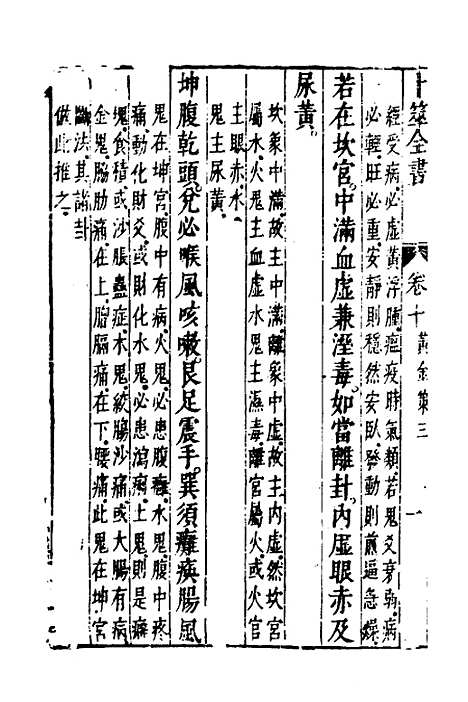 卜筮全書 卷十黃金策三 一
經受病必虛黃浮腫瘟疫時氣類若鬼爻衰弱病
必輕旺必重安靜則穩然安臥發動則煎逼急燥
若在坎宮中滿血虛兼溼毒如當離卦內虛眼赤及
尿黃
坎象中滿故主中滿離象中虛故主內虛然坎宮
屬水火鬼主血虛水鬼主濕毒離宮屬火或火官
主眼赤水
鬼主尿黃
坤腹乾頭兌必喉風咳嗽艮足震手巽須癱瘓腸風
鬼在坤宮腹中有病火鬼必患腹癰水鬼腹中疼
痛動化財爻或財化水鬼必患瀉痢土鬼則是癖
塊食積或沙脹蠱症木鬼絞腸沙痛或大腸有病
金鬼脇肋痛在上胸膈痛在下腰痛此鬼在坤宮
斷法其諸卦
倣此推之